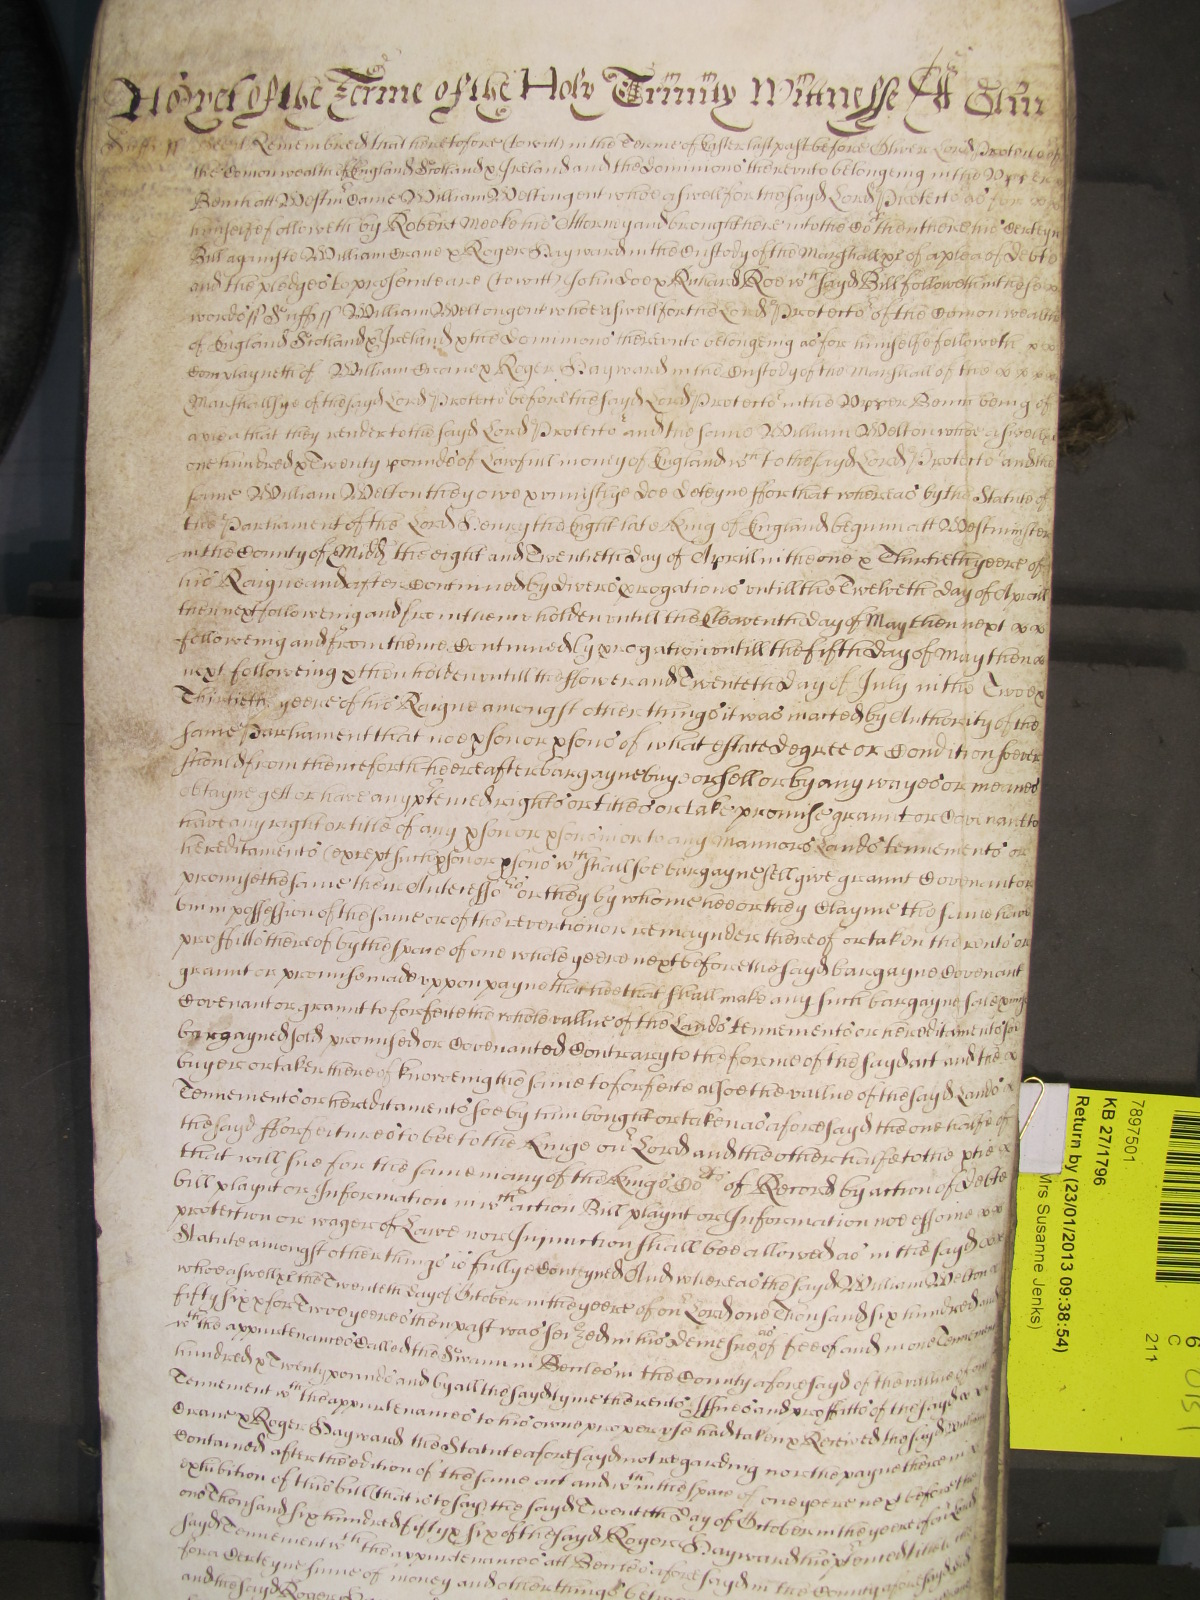 of the Terme of the Holy Trinity Wittnesse
Suff ss Bee it Remembred that heretofore (to witt) in the Terme of Easter last past before Oliver Lord Protector of
the Comonwealth of England Scotland & Ireland and the dominions therevnto belongeing in the Vpper
Bench att Westmr Came William Welton gent whoe aswell for the sayd Lord Protector as for
himselfe followeth by Robert Meeke his Attorney and brought here into the Cort then there his Certeyn
Bill against William Crane & Roger Hayward in the Custody of the Marshall &c of a plea of debte
and the pledges to prosecute are (to witt) John Doe & Richard Roe wch sayd Bill followeth in these
words ss Suff ss William Welton gent whoe aswell for the Lord Protector of the Comonwealth
of England Scotland & Ireland & the Dominions therevnto belongeing as for himselfe followeth
Complayneth of William Crane & Roger Hayward in the Custody of the Marshall of the
Marshallsye of the sayd Lord Protector before the sayd Lord Protector in the Vpper Bench being of
a plea that they render to the sayd Lord Protector and the same William Welton whoe aswell
one hundred & Twenty pounds of Lawfull money of England wch to the sayd Lord Protector and the
same William Welton they owe & vniustlye doe deteyne ffor that whereas by the Statute of
the Parliament of the Lord Henry the Eight late King of England begunn att Westminster
in the County of Midd the eight and Twentieth day of Aprill in the one & Thirtieth yeere of
his Raigne and after Continued by divers progations vntill the Twelveth day of Aprill
then next followeing and from thence holden vntill the Eleaventh day of May then next
followeing and from thence Continued by progation vntill the fifth day of May then
next followeing & then holden vntill the ffower and Twenteth day of July in the Two &
Thirtieth yeere of his Raigne amongst other things it was inacted by Authority of the
same Parliament that noe pson or psons of what estate degree or Condition soever
should from thenceforth hereafter bargayne buy or sell or by any wayes or meanes
obtayne gett or have any ptenced rights or titles or take promise graunt or Covenant to
have any right or title of any pson or psons in or to any Mannors Lands tennements or
hereditaments (except such pson or psons wch shall soe bargayne sell give graunt Covenant or
promise the same their Auncessors or they by whome hee or they Clayme the same have
bin in possession of the same or of the revertion or remeynder thereof or taken the rents or
proffitts thereof by the space of one whole yeere next before the sayd bargayne Covenant
graunt or promise made vppon payne that hee that shall make any such bargayne sale promise
Covenant or graunt to forfeite the whole vallue of the Lands tennements or hereditaments soe
bargayned sold promised or Covenanted Contrary to the forme of the sayd act and the
buyer or taker thereof knoweing the same to forfeite alsoe the vallue of the sayd Lands
Tennements or hereditaments soe by him bought or taken as aforesayd the one halfe of
the sayd fforfeitures to bee to the Kinge our Lord and the other halfe to the ptie
that will sue for the same in any of the Kings Corts of Record by action of Debte
bill playnt or Information in wch action Bill playnt or Information noe essoine
protection or wager of Lawe nor Injunction shall bee allowed as in the sayd
Statute amongst other things is fullye Conteyned And whereas the sayd William Welton
whoe aswell &c the Twenteth day of October in the yeere of our Lord one Thousand six hundred and
fifty six & for Two yeeres then past was seized in his demesne as of fee of and in one Tennement
wth the appurtenances Called the Swann in Beccles in the County aforesayd of the vallue of one
hundred & Twenty pounds and by all the sayd tyme the rents Issues and proffitts of the sayd
Tennement wth the appurtenances to his owne proper vse had taken & Received the sayd William
Crane & Roger Hayward the Statute aforesayd not regarding nor the payne therein
Contained after the edition of the same act and wthin the space of one yeere next before the
exhibition of this bill (that is to say) the sayd Twenteth day of October in the yeere of our Lord
one Thousand six hundred fifty & six of the sayd Roger Hayward the ptenced title
sayd Tennement wth the appurtenances att Beccles aforesayd in the County aforesayd did
for a Certeyne sume of money and other things
and the sayd Roger
7897501
KB 27/1796
Return by (23/01/2013 09:38:54)
Mrs Susanne Jenks)
6
C
211